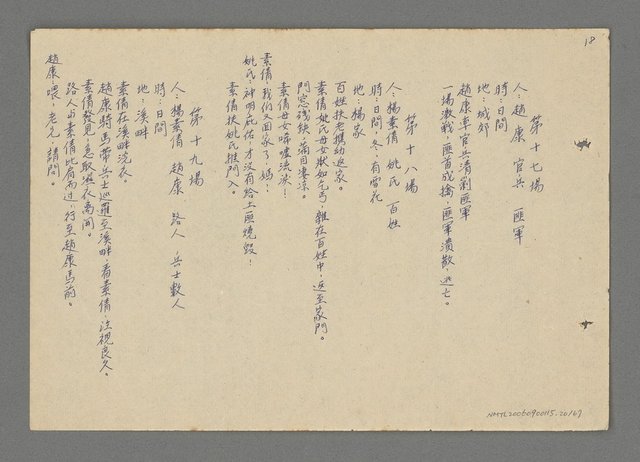 18
第十七場
人：趙康 官兵 匪軍
時：日間
地：城郊
趙康率官兵清剿匪軍
一場激戰，匪首成擒，匪軍潰散，逃亡。
第十八場
人：楊素倩 姚氏 百姓
時：日間，冬，有雪花
地：楊家
百姓扶老攜幼返家。
素倩姚氏母女狀如乞丐，雜在百姓中，返至家門。
門窓殘缺，滿目凄涼。
素倩母女唏噓流淚！
素倩：我們又回家了，媽！
姚氏：神明庇佑，才沒有給土匪燒毀！
素倩扶姚氏推門入。
第十九場
人：楊素倩 趙康 路人 兵士數人
時：日間
地：溪畔
素倩在溪畔浣衣。
趙康騎馬帶兵士巡邏至溪畔，看素倩，注視良久。
素倩發見，急取濕衣離開。
路人與素倩比肩而过，行至趙康馬前。
趙康：喂，老兄，請問。
NMTL20060900115.20/67